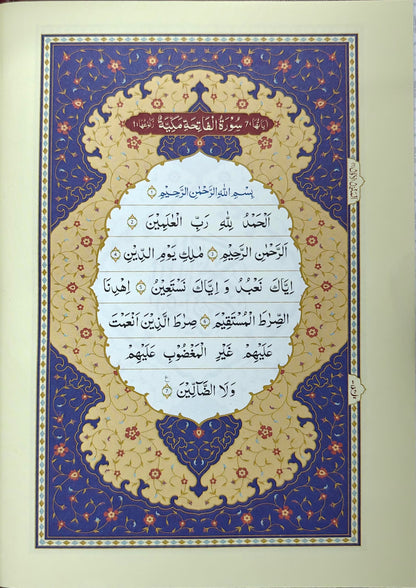 اٰيَاتُهَا ٧ سُوْرَةُ الْفَاتِحَةِ مَكِّيَّةٌ رُكُوْعُهَا ١
بِسْمِ اللّٰهِ الرَّحْمٰنِ الرَّحِيْمِ ۝١
اَلْحَمْدُ لِلّٰهِ رَبِّ الْعٰلَمِيْنَ ۝٢
اَلرَّحْمٰنِ الرَّحِيْمِ ۝٣ مٰلِكِ يَوْمِ الدِّيْنِ ۝٤
اِيَّاكَ نَعْبُدُ وَ اِيَّاكَ نَسْتَعِيْنُ ۝٥ اِهْدِنَا
الصِّرَاطَ الْمُسْتَقِيْمَ ۝٦ صِرَاطَ الَّذِيْنَ اَنْعَمْتَ
عَلَيْهِمْ غَيْرِ الْمَغْضُوْبِ عَلَيْهِمْ
وَلَا الضَّآلِّيْنَ ۝٧